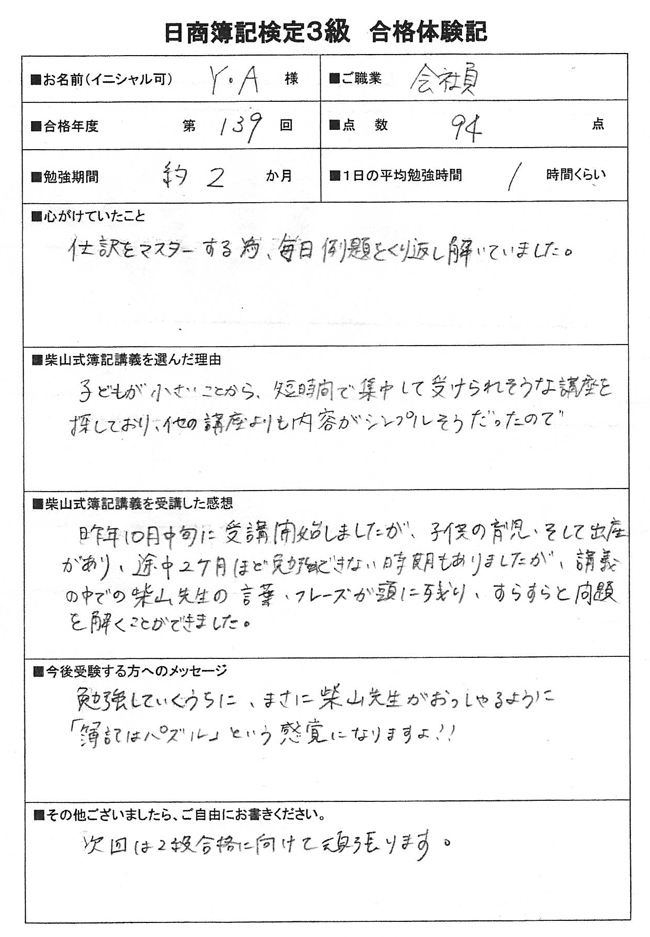 日商簿記検定3級 合格体験記
■お名前(イニシャル可) Y・A 様 ■ご職業 会社員
■合格年度 第 139 回 ■点 数 94 点
■勉強期間 約 2 か月 ■1日の平均勉強時間 1 時間くらい
■心がけていたこと
仕訳をマスターする為、毎日例題をくり返し解いていました。
■柴山式簿記講義を選んだ理由
子どもが小さいことから、短時間で集中して受けられそうな講座を
探しており、他の講座よりも内容がシンプルそうだったので
■柴山式簿記講義を受講した感想
昨年10月中旬に受講開始しましたが、子供の育児、そして出産
があり、途中2ケ月ほど勉強できない時期もありましたが、講義
の中での柴山先生の言葉・フレーズが頭に残り、すらすらと問題
を解くことができました。
■今後受験する方へのメッセージ
勉強していくうちに、まさに柴山先生がおっしゃるように
「簿記はパズル」という感覚になりますよ!!
■その他ございましたら、ご自由にお書きください。
次回は2級合格に向けて頑張ります。